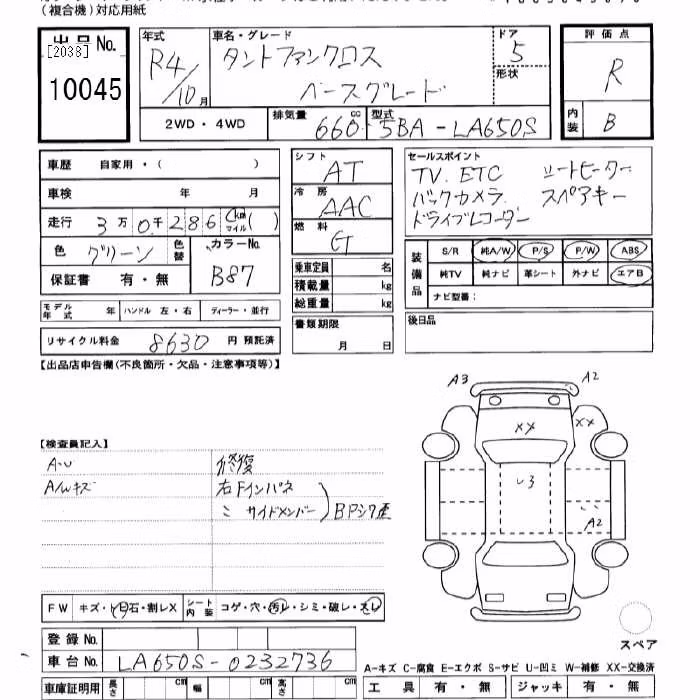 (複合機)対応用紙
出品 No.
[2038]
10045
年式
R4/10月
車名・グレード
タントファンクロス
ベースグレード
ドア
5
形状
評価点
R
内装
B
2WD・4WD
排気量
660 cc
型式
5BA-LA650S
車歴 自家用・( )
車検 年 月
走行 3万0千286 km マイル ( )
色 グリーン
色替
カラーNo.
B87
保証書 有・無
シフト
AT
冷房
AAC
燃料
G
乗車定員 名
積載量 kg
総重量 kg
書類期限
月 日
セールスポイント
TV. ETC シートヒーター
バックカメラ. スペアキー
ドライブレコーダー
装備品
S/R 純A/W P/S P/W ABS
純TV 純ナビ 革シート 外ナビ エアB
ナビ型番:
後日品
モデル年式 年 ハンドル 左・右 ディーラー・並行
リサイクル料金 8630 円 預託済
【出品店申告欄(不良箇所・欠品・注意事項等)】
【検査員記入】
A・U
A/Wキズ
修復
右Fインパネ
〃 サイドメンバー
BPシワ歪
A3
A2
XX
XX
3
A2
FW キズ・飛石・割レX
シート内装 コゲ・穴・汚レ・シミ・破レ・スレ
登録 No.
車台 No. LA650S-0232736
スペア
A-キズ C-腐食 E-エクボ S-サビ U-凹ミ W-補修 XX-交換済
車庫証明用 長さ cm 幅 cm 高さ cm
工具 有・無 ジャッキ 有・無